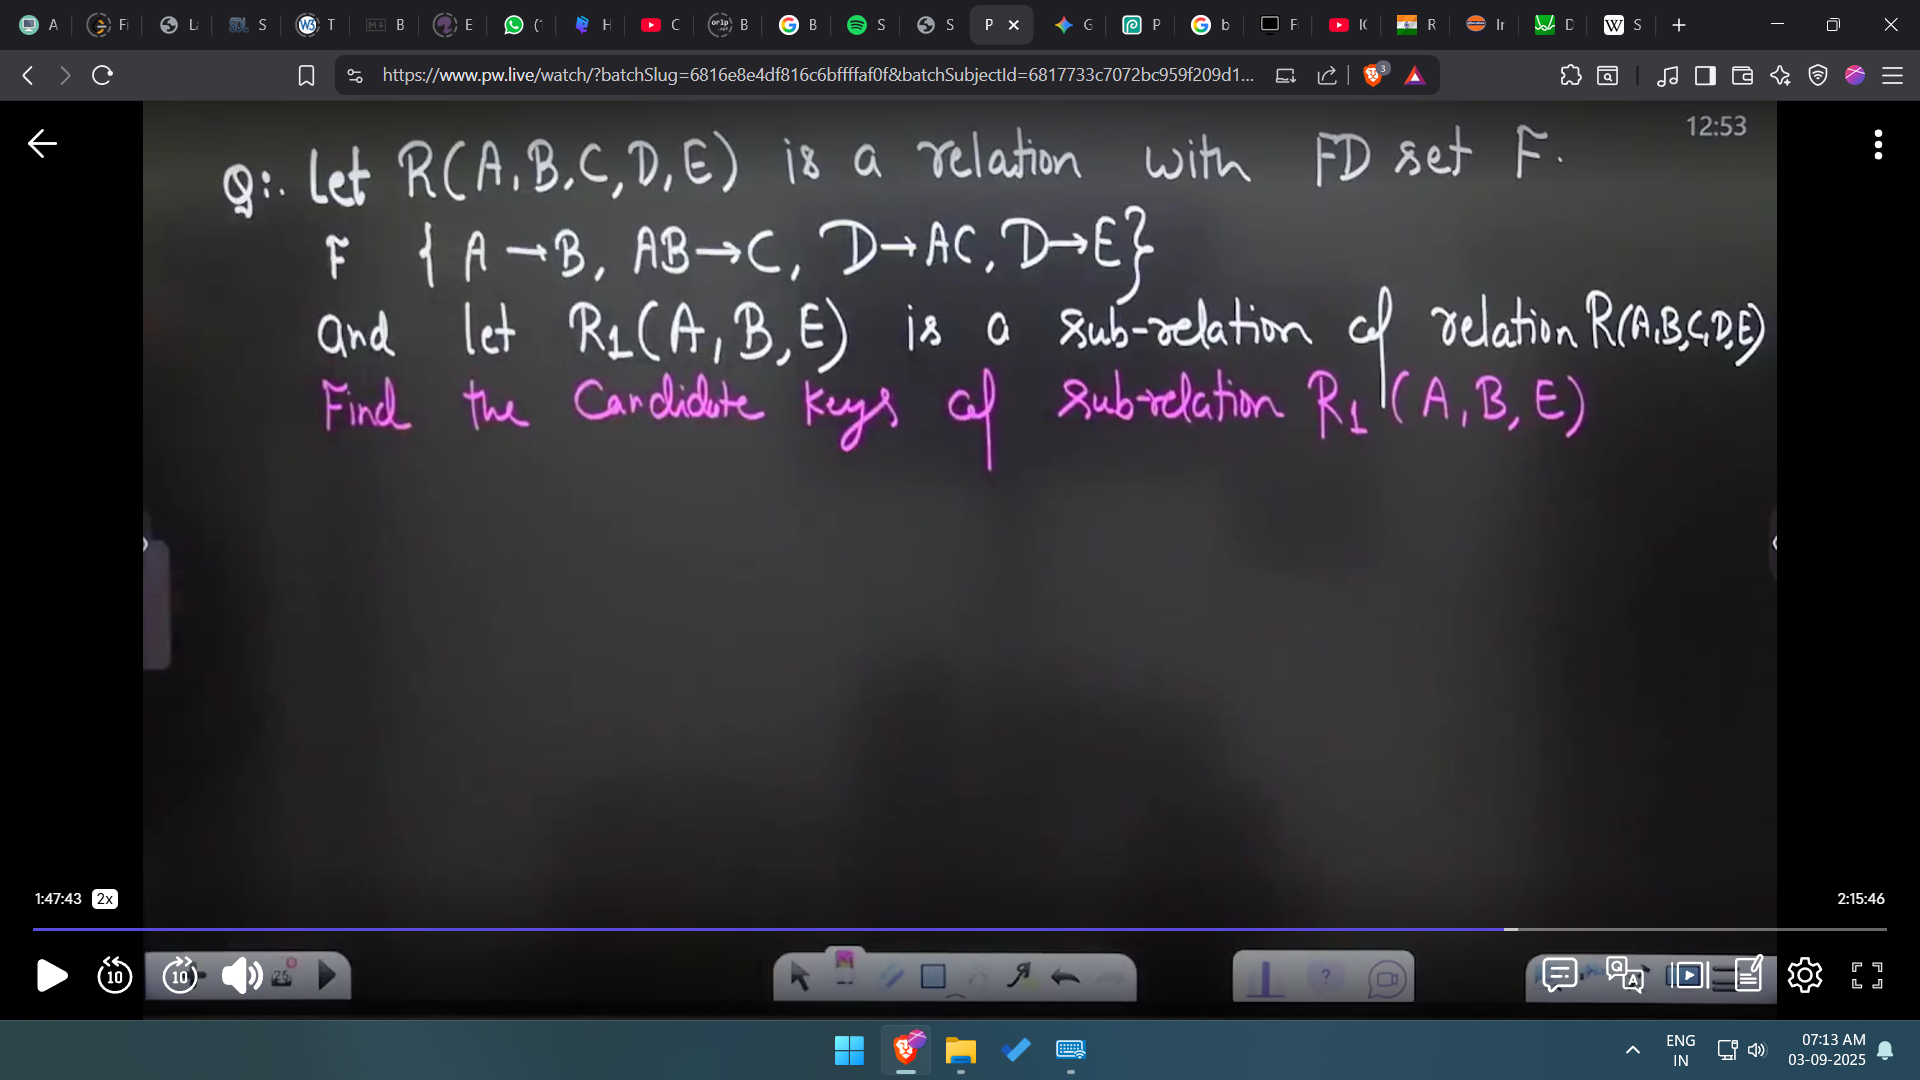 A Fi L S T B E ( H C B B S S P G P b F IC R Ir D S
https://www.pw.live/watch/?batchSlug=6816e8e4df816c6bffffaf0f&batchSubjectId=6817733c7072bc959f209d1... 3
12:53
Q:. Let R(A,B,C,D,E) is a relation with FD set F.
F { A → B, AB → C, D → AC, D → E}
And let R1(A,B,E) is a sub-relation of relation R(A,B,C,D,E)
Find the Candidate keys of sub-relation R1(A,B,E)
1:47:43 2x 2:15:46
10 10 25 ? Q A
ENG 07:13 AM
IN 03-09-2025